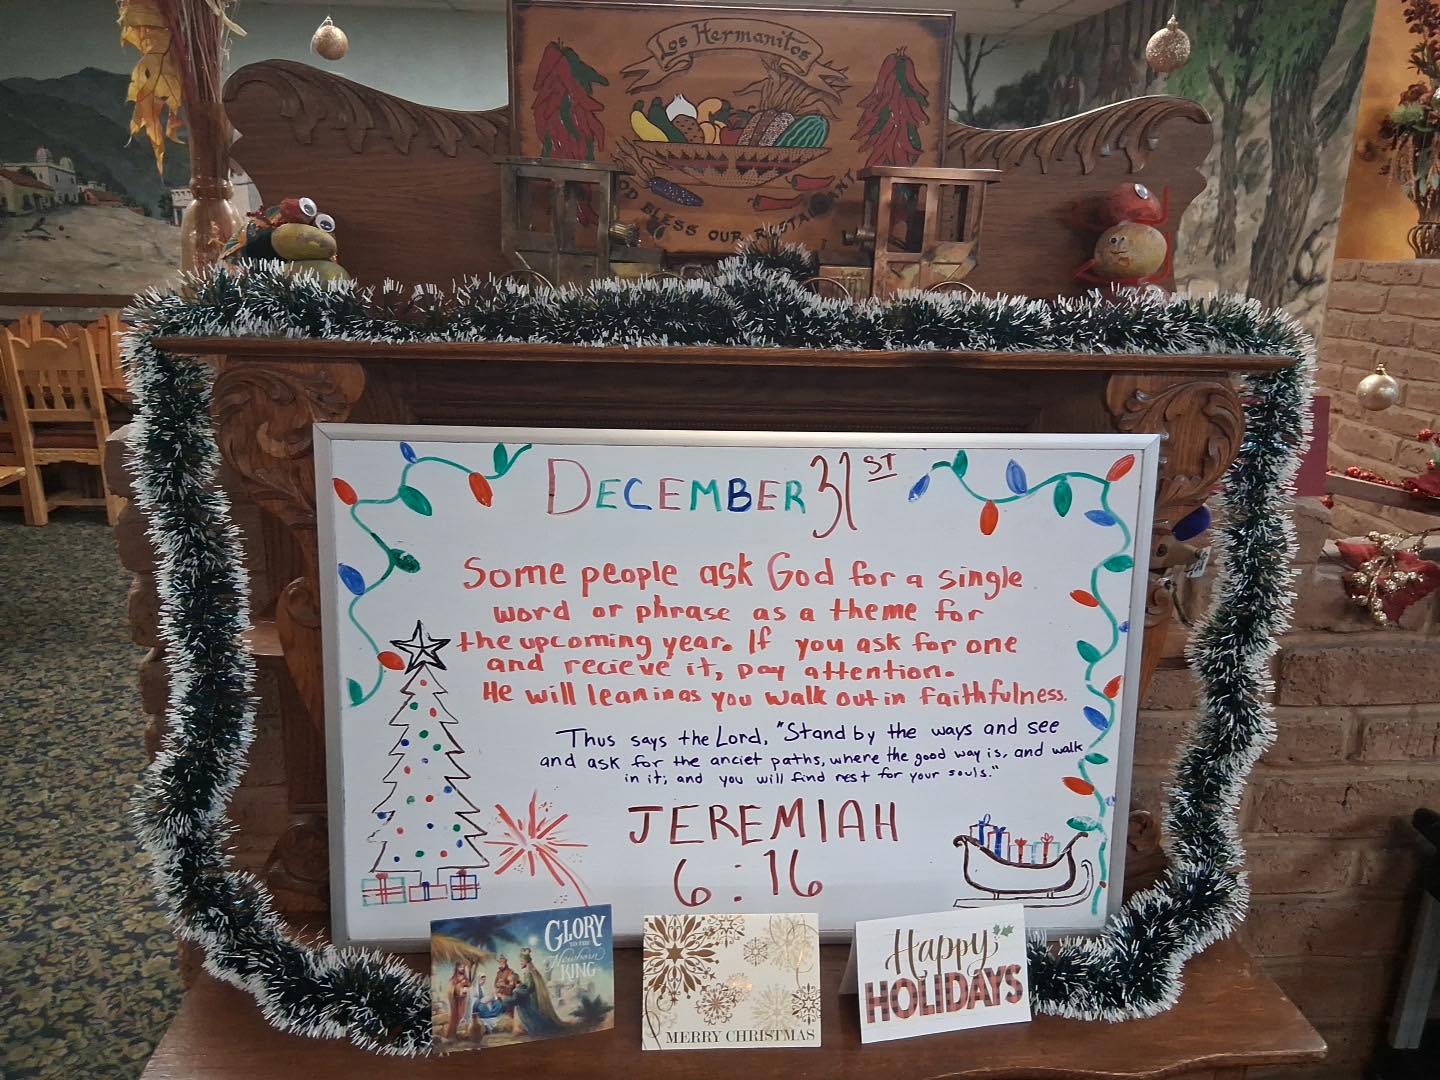 Los Hermanitos
OD BLESS OUR RESTAURANT
DECEMBER 31ST
Some people ask God for a single
word or phrase as a theme for
the upcoming year. If you ask for one
and recieve it, pay attention.
He will lean in as you walk out in faithfulness.
Thus says the Lord, "Stand by the ways and see
and ask for the anciet paths, where the good way is, and walk
in it; and you will find rest for your souls."
JEREMIAH
6:16
GLORY
TO THE
Newborn
KING
MERRY CHRISTMAS
Happy
HOLIDAYS